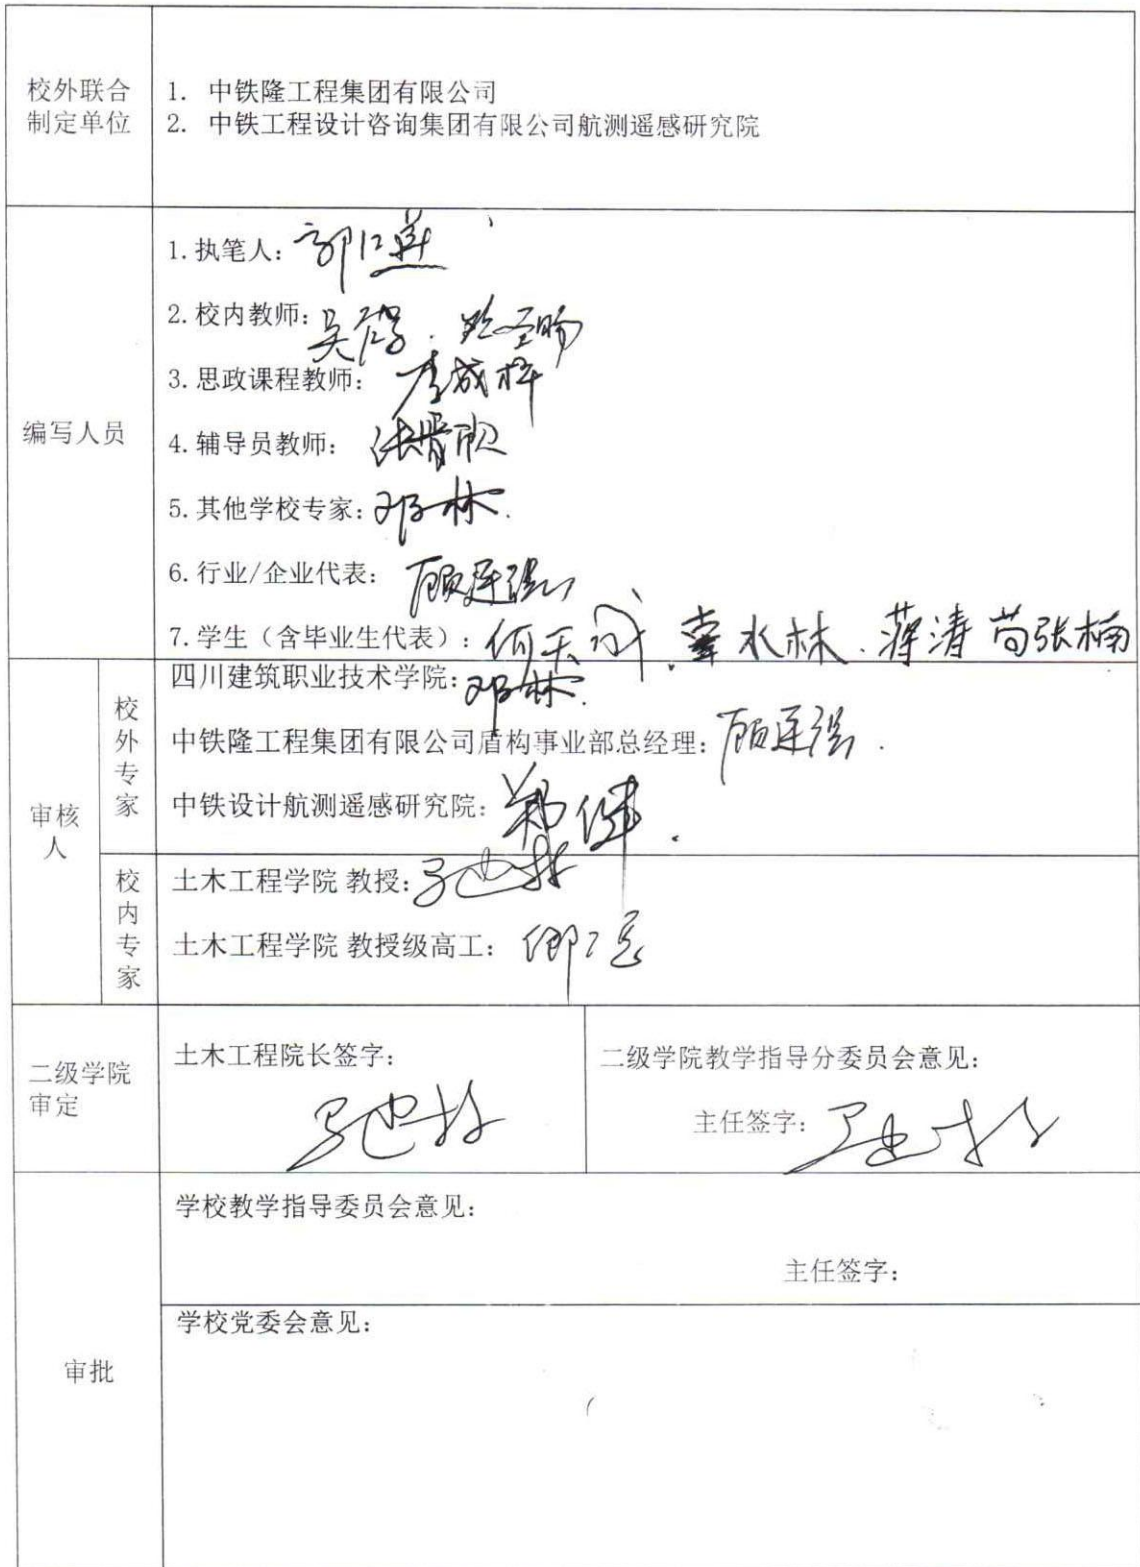 校外联合
制定单位
1. 中铁隆工程集团有限公司
2. 中铁工程设计咨询集团有限公司航测遥感研究院
编写人员
1.执笔人：
2.校内教师：
3.思政课程教师：李成梓
4.辅导员教师：
5.其他学校专家：邓林
6.行业/企业代表：顾连强
7.学生（含毕业生代表）：何天成 水林 蒋清 苟张楠
审核
人
校
外
专
家
四川建筑职业技术学院：邓林
中铁隆工程集团有限公司盾构事业部总经理：顾连强
中铁设计航测遥感研究院：郑健
校
内
专
家
土木工程学院 教授：
土木工程学院 教授级高工：
二级学院
审定
土木工程院长签字：
二级学院教学指导分委员会意见：
主任签字：
审批
学校教学指导委员会意见：
主任签字：
学校党委会意见：